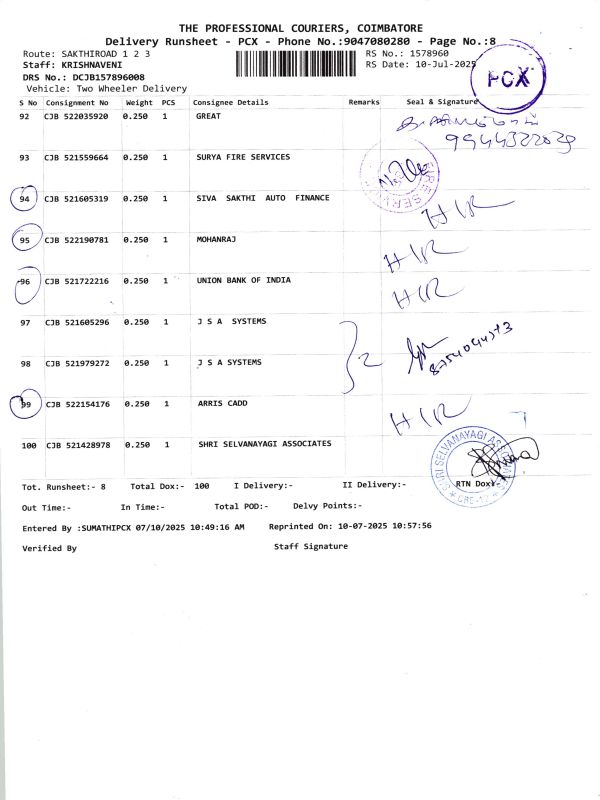 THE PROFESSIONAL COURIERS, COIMBATORE
Delivery Runsheet - PCX - Phone No.:9047080280 - Page No.:8
Route: SAKTHIROAD 1 2 3 RS No.: 1578960
Staff: KRISHNAVENI RS Date: 10-Jul-2025
PCX
DRS No.: DCJB157896008
Vehicle: Two Wheeler Delivery
S No Consignment No Weight PCS Consignee Details Remarks Seal & Signature
92 CJB 522035920 0.250 1 GREAT
93 CJB 521559664 0.250 1 SURYA FIRE SERVICES
94 CJB 521605319 0.250 1 SIVA SAKTHI AUTO FINANCE HIR
95 CJB 522190781 0.250 1 MOHANRAJ HIR
96 CJB 521722216 0.250 1 UNION BANK OF INDIA HIR
97 CJB 521605296 0.250 1 J S A SYSTEMS
2
98 CJB 521979272 0.250 1 J S A SYSTEMS
99 CJB 522154176 0.250 1 ARRIS CADD HIR
100 CJB 521428978 0.250 1 SHRI SELVANAYAGI ASSOCIATES
SHRI SELVANAYAGI
Tot. Runsheet:- 8 Total Dox:- 100 I Delivery:- II Delivery:- RTN Dox:-
Out Time:- In Time:- Total POD:- Delvy Points:-
Entered By :SUMATHIPCX 07/10/2025 10:49:16 AM Reprinted On: 10-07-2025 10:57:56
Verified By Staff Signature